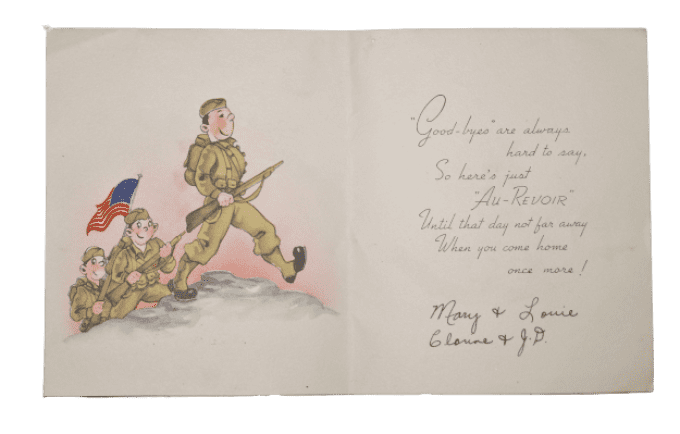 "Good-byes" are always
hard to say,
So here's just
"AU-REVOIR"
Until that day not far away
When you come home
once more!
Mary & Louie
& J.D.